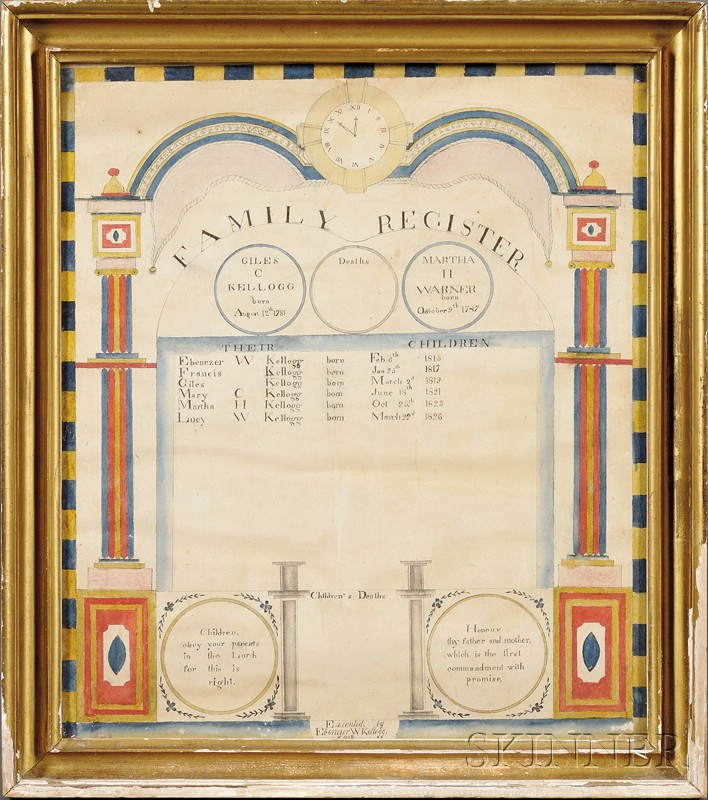 FAMILY REGISTER
GILES
C
KELLOGG
born
August 12th 1781
Deaths
MARTHA
H
WARNER
born
October 9th 1787
THEIR CHILDREN
Ebenezer W Kellogg born Feb 6th 1815
Francis Kellogg born Jan 25th 1817
Giles Kellogg born March 2d 1819
Mary C Kellogg born June 18th 1821
Martha H Kellogg born Oct 25th 1823
Lucy W Kellogg born March 22d 1826
Children's Deaths
Children,
obey your parents
in the Lord
for this is
right.
Honour
thy father and mother,
which is the first
commandment with
promise,
Executed by
Ebenezer W Kellogg
SKINNER